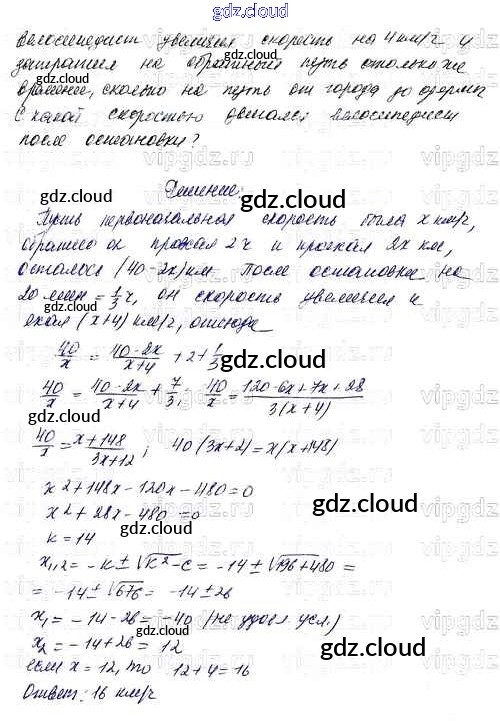 gdz.cloud
велосипедист увеличил скорость на 4 км/ч и
затратил на обратный путь столько же
времени, сколько на путь от города до
С какой скоростью двигался велосипедист
после остановки?
gdz.cloud
Решение:
gdz.cloud
Пусть первоначальная скорость была x км/ч,
обратно он проехал 2 ч и проехал 2x км,
осталось (40-2x) км После остановки на
20 мин = 1/3 ч, он скорость увеличил и
ехал (x+4) км/ч, отсюда
gdz.cloud
40/x = (40-2x)/(x+4) + 2 + 1/3
40/x = (40-2x)/(x+4) + 7/3; 40/x = (120-6x+7x+28)/(3(x+4))
40/x = (x+148)/(3x+12); 40(3x+2)=x(x+148)
gdz.cloud
x²+148x-120x-480=0
x²+28x-480=0
gdz.cloud
k=14
x₁,₂ = -k±√(k²-c) = -14±√(196+480) =
= -14±√676 = -14±26
gdz.cloud
x₁ = -14-26 = -40 (не удовл. усл.)
x₂ = -14+26 = 12
gdz.cloud
если x=12, то 12+4=16
Ответ: 16 км/ч
gdz.cloud